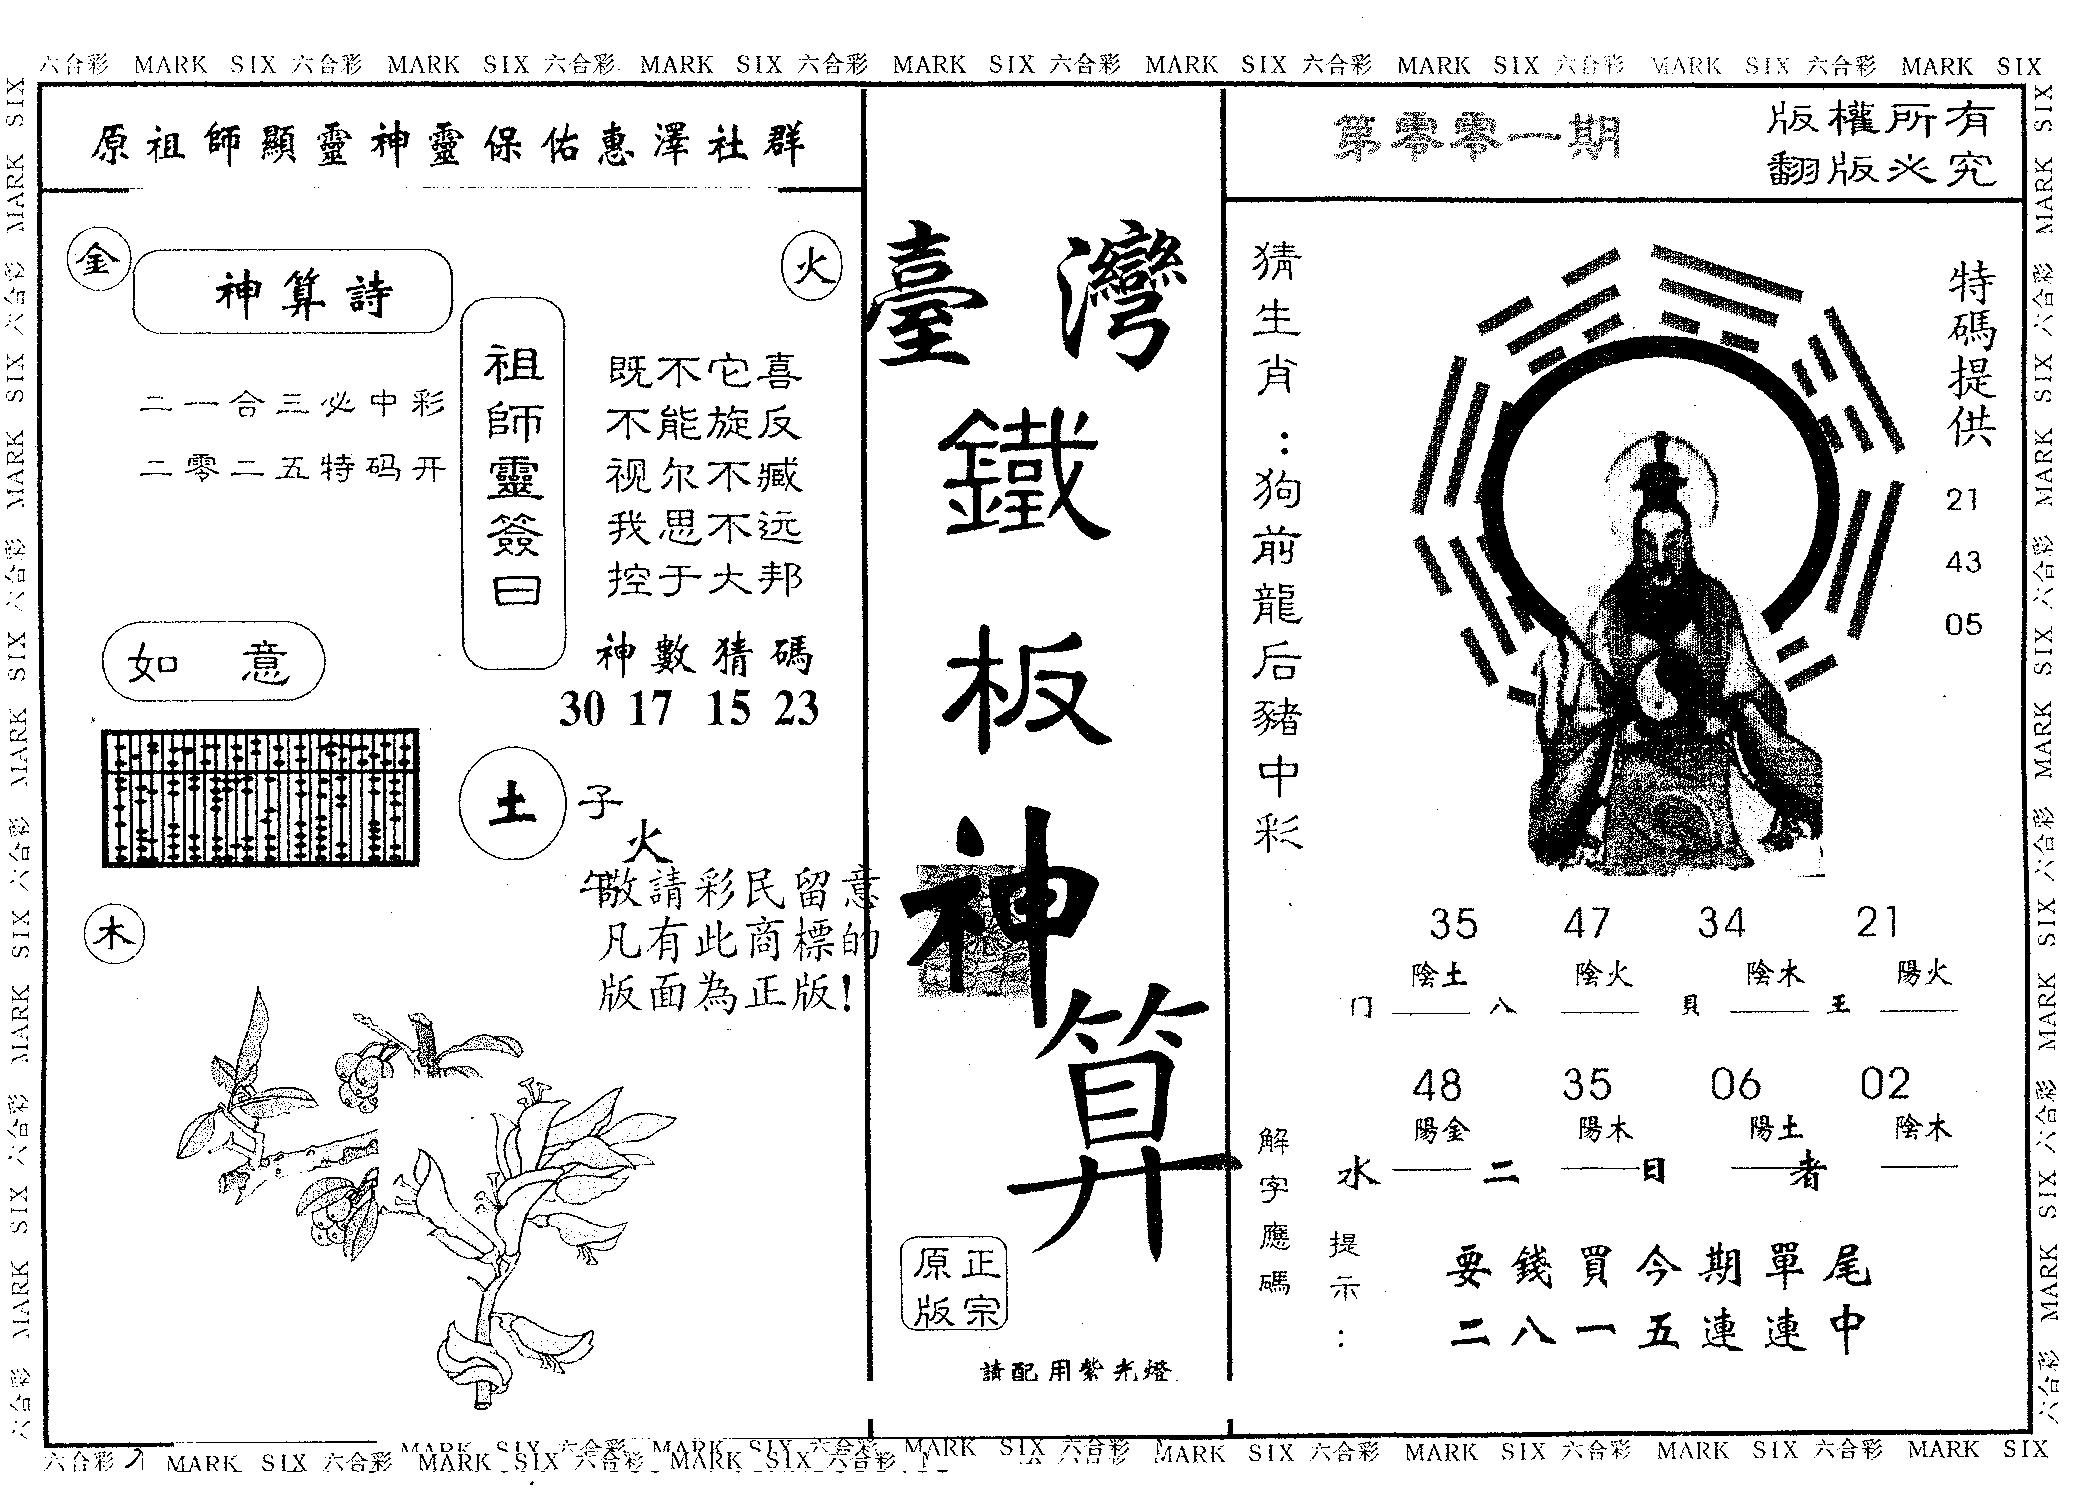 六合彩 MARK SIX 六合彩 MARK SIX 六合彩 MARK SIX 六合彩 MARK SIX 六合彩 MARK SIX 六合彩 MARK SIX 六合彩 MARK SIX 六合彩 MARK SIX
原祖師顯靈神靈保佑惠澤社群
金
神算詩
火
二一合三必中彩
二零二五特码开
祖師靈簽曰
既不它喜
不能旋反
视尔不臧
我思不远
控于大邦
如意
神數猜碼
30 17 15 23
土
子
火
午
敬請彩民留意
凡有此商標的
版面為正版!
木
臺灣
鐵
板
神
算
原正
版宗
請配用紫光燈
第零零一期
版權所有
翻版必究
猜生肖:狗前龍后豬中彩
特碼提供
21
43
05
35 47 34 21
陰土 陰火 陰木 陽火
门 八 貝 王
48 35 06 02
陽金 陽木 陽土 陰木
水 二 日 者
解字應碼
提示:
要錢買今期單尾
二八一五連連中
六合彩 MARK SIX 六合彩 MARK SIX 六合彩 MARK SIX 六合彩
MARK SIX 六合彩 MARK SIX 六合彩 MARK SIX 六合彩 MARK SIX 六合彩 MARK SIX 六合彩 MARK SIX 六合彩 MARK SIX